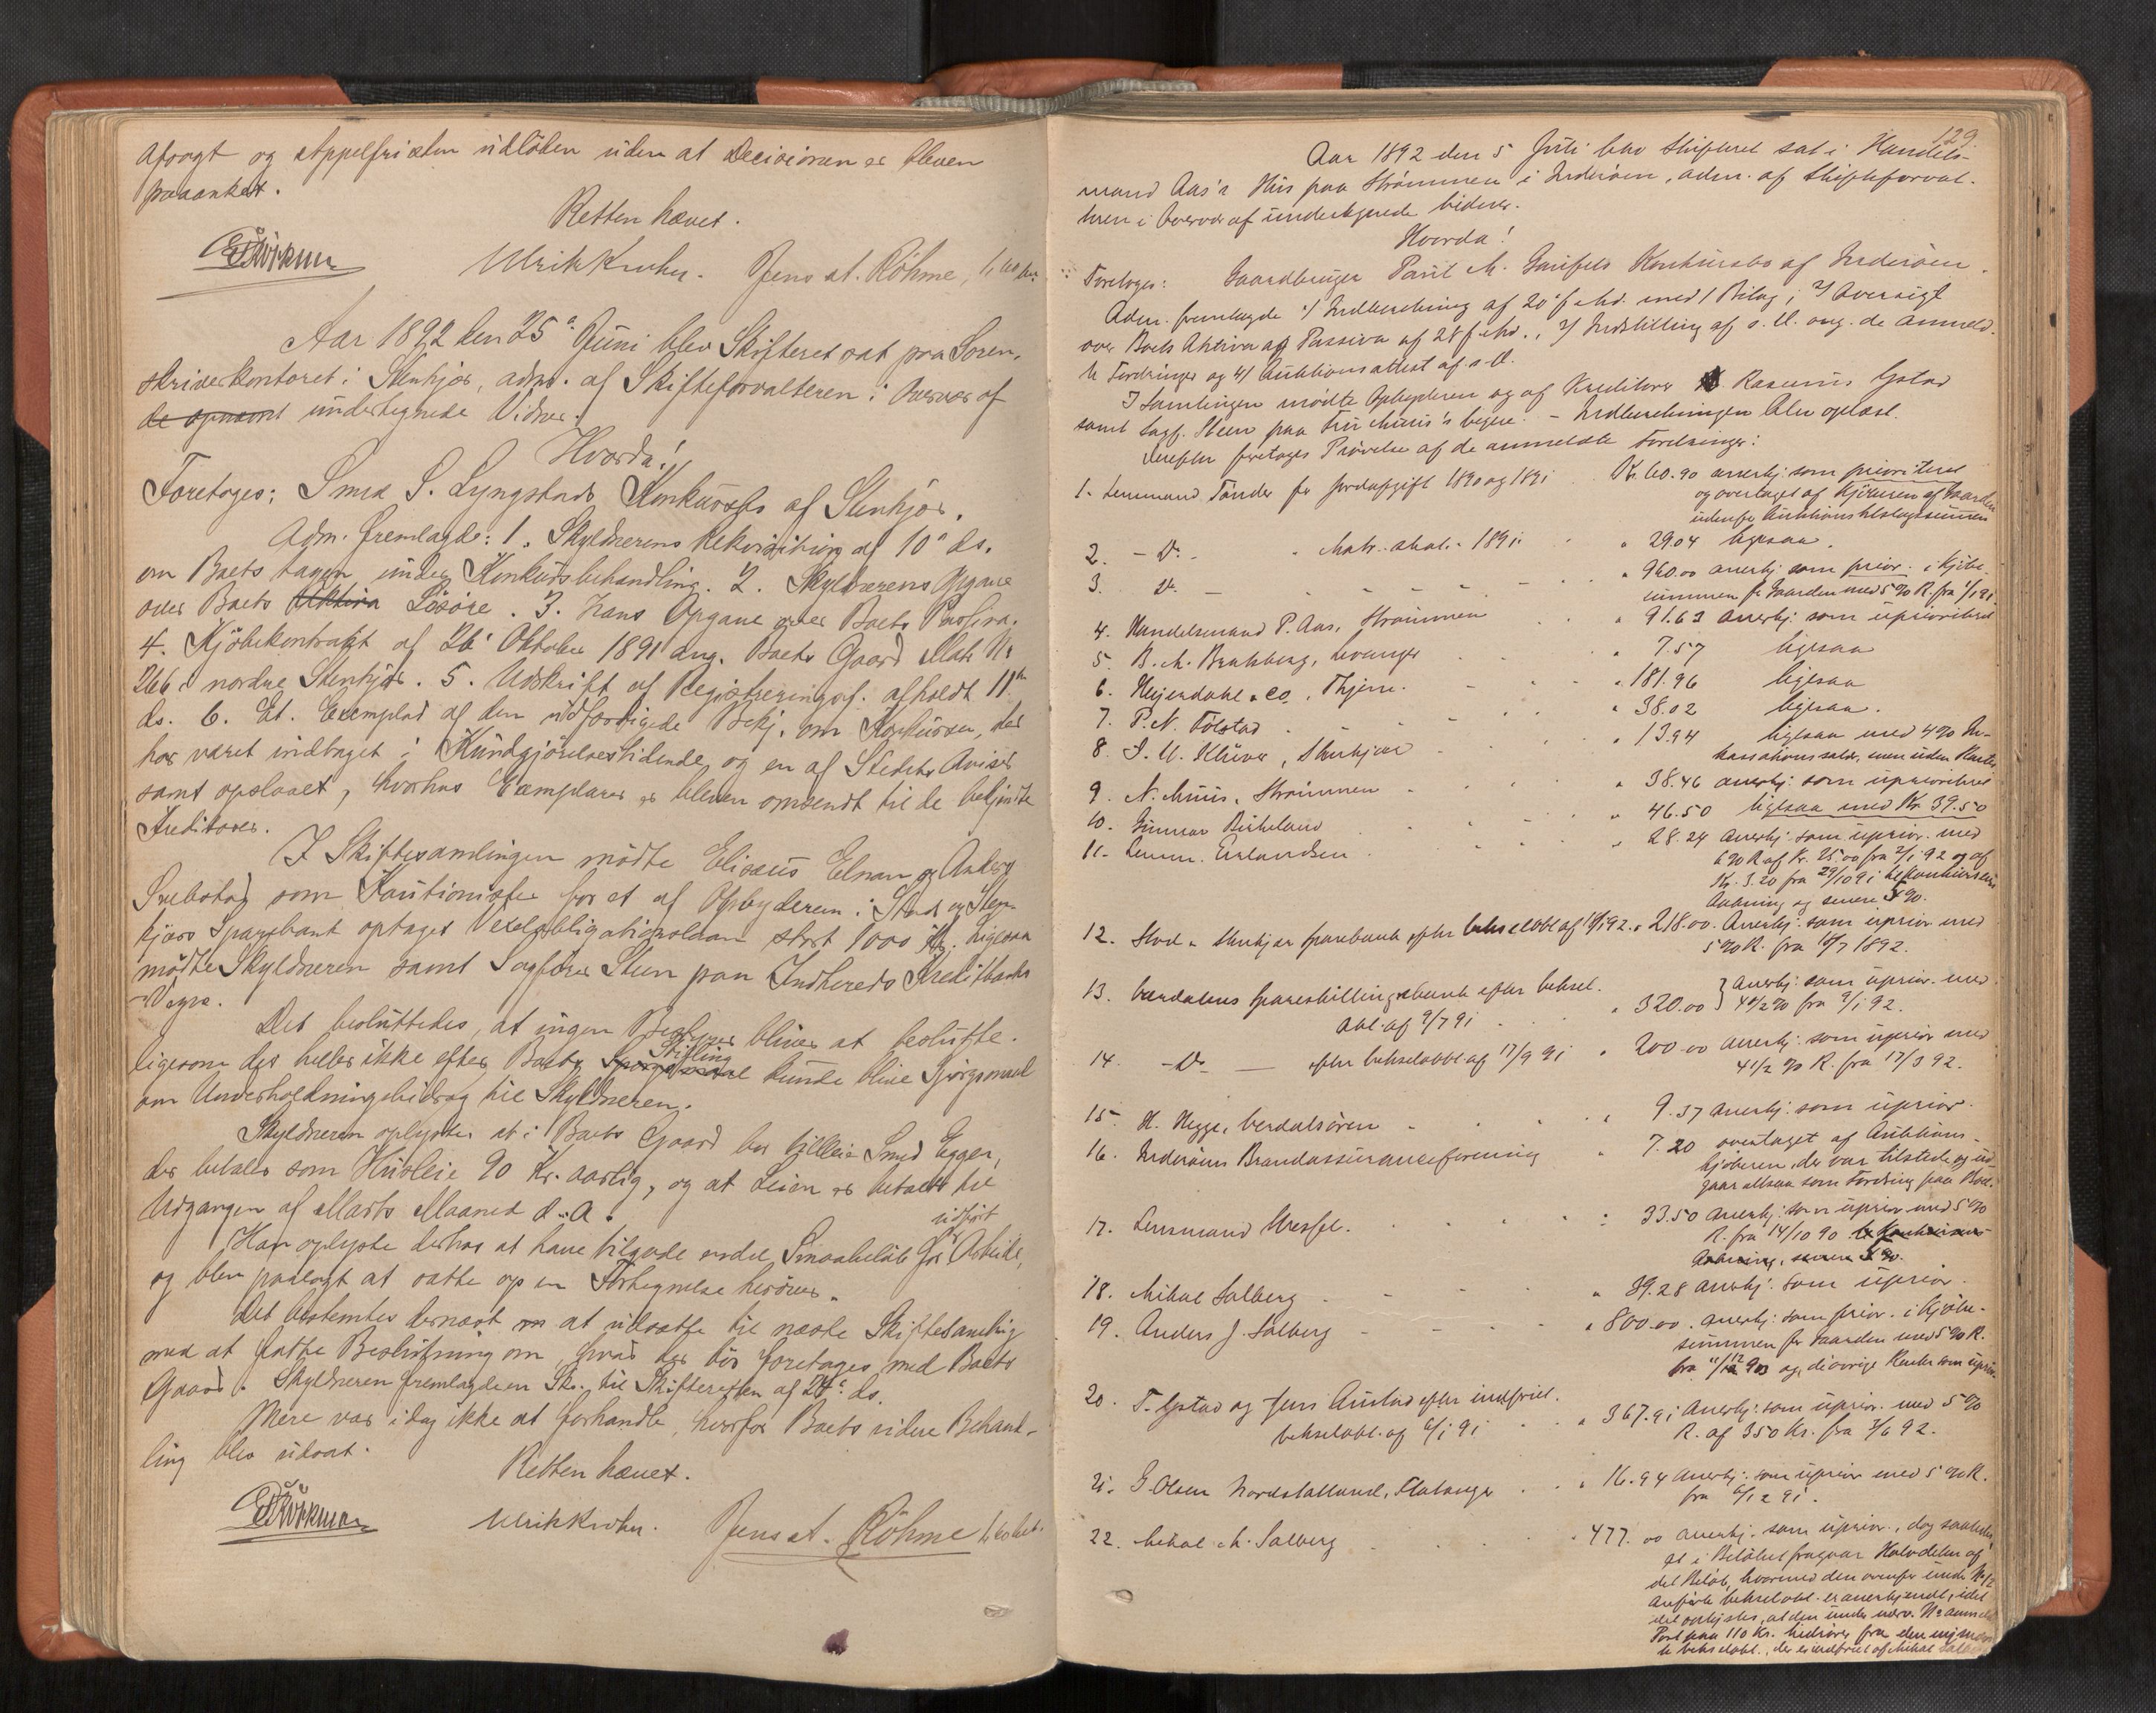 afsagt og Appelfristen udløben uden at Decisionen er bleven
paaanket.
Retten hævet.
Ulrik Krohn. Jens A. Röhme,
Aar 1892 den 25de Juni blev Skifteret sat paa Soren-
skriverkontoret i Stenkjær, adm. af Skifteforvalteren i Overvær af
de opnævnt undertegnede Vidner.
Hvorda!
Foretoges: Smed S. Lyngstads Konkursbo af Stenkjær.
Adm. fremlagde: 1. Skyldnerens Rekvisition af 10de ds.
om Boets tagen under Konkursbehandling. 2. Skyldnerens Opgave
over Boets Aktiva Løsøre. 3. hans Opgave over Boets Passiva.
4. Kjøbekontrakt af 26de Oktober 1891 ang. Boets Gaard Matr. Nr
266 i nordre Stenkjær. 5. Udskrift af Registreringsf. afholdt 11te
ds. 6. Et Exemplar af den udfærdigede Bekj. om Konkursen, der
har været indtaget i Kundgjørelsestidende og en af Stedets Aviser
samt opslaaet, hvorhos Exemplarer er bleven omsendt til de bekjendte
Kreditorer.
I Skiftesamlingen mødte Elisæus Elnan og Anders
som Kautionister for et af Opbyderen i Stod og Sten-
kjærs Sparebank optaget Vexelobligationslaan stort 1000 Kr. Ligesaa
mødte Skyldneren samt Sagfører Steen paa Indherreds Kreditbanks
Vegne.
Det besluttedes, at ingen Bestyrer bliver at beskikke.
ligesom der heller ikke efter Boets Spørgsmaal Stilling kunde blive Spørgsmaal
om Underholdningsbidrag til Skyldneren.
Skyldneren oplyste at i Boets Gaard bor tilleie Smed Egger,
der betaler som Husleie 90 Kr. aarlig, og at Leien er betalt til
Udgangen af Marts Maaned d. A.
Han oplyste derhos at have tilgode endel Smaabeløb for udført Arbeide,
og blev paalagt at sætte op en Fortegnelse herover.
Det bestemtes dernæst at udsætte til næste Skiftesamling
med at fatte Beslutning om, hvad der bør foretages med Boets
Gaard. Skyldneren fremlagde en Skr. til Skifteretten af 24de ds.
Mere var idag ikke at forhandle, hvorfor Boets videre Behand-
ling blev udsat.
Retten hævet.
Ulrik Krohn. Jens A. Röhme
129
Aar 1892 den 5 Juli blev Skifteret sat i Handels-
mand Aas's Hus paa Strømmen i Inderøen, adm. af Skifteforval-
teren i Overvær af undertegnede Vidner.
Hvorda!
Foretoges: Gaardbruger Paul M. Konkursbo af Inderøen.
Adm. fremlagde 1/ Indberetning af 20 f. Md. med 1 Bilag; 2/ Oversigt
over Boets Aktiva og Passiva af 28 f. Md., 3/ Indstilling af s. D. ang. de anmeld-
te Fordringer og 4/ Auktionsattest af s. D.
I Samlingen mødte Opbyderen og af Kreditorer Rasmus Ystad
samt Sagf. Steen paa Fru Muus's vegne. – Indberetningen blev oplæst.
Derefter foretoges Prøvelse af de anmeldte Fordringer:
1. Lensmand Tønder for Jordafgift 1890 og 1891 Kr. 60.90 anerkj. som prioriteret
og overtaget af Kjøberen af Gaarden
udenfor Auktionstilslagssummen
2. – Do. – Matr. skat. 1891. " 29.04 ligesaa.
3. Do. – " 960.00 anerkj. som prior. i Kjøbe-
summen for Gaarden med 5% R. fra 1/1 91
4. Handelsmand P. Aas, Strømmen " 91.63 anerkj. som uprioriteret
5. B. M. Bratsberg, Levanger " 7.57 ligesaa
6. Huitfeldt & Co., Thjem. " 181.96 ligesaa
7. P. N. Tolstad " 38.02 ligesaa.
8. J. U. Klüver, Stenkjær " 13.94 ligesaa med 4% In-
kassationssalær, men uden Renter
9. N. Muus, Strømmen " 38.46 anerkj. som uprioriteret
10. Gunnar Birkeland " 46.50 ligesaa med Kr. 39.50
11. Lensm. Erlandsen " 28.24 anerkj. som uprior. med
6% R af Kr. 25.00 fra 2/1 92 og af
Kr. 3.20 fra 29/10 91 til Konkursens
Aabning og senere 5%.
12. Stod & Stenkjær Sparebank efter Vexelobl. af 1892. " 218.00. Anerkj. som uprior. med
5% R. fra 1892.
13. Værdalens Spareskillingsbank efter Vexel-
obl. af 9/7 91 " 320.00 } anerkj. som uprior. med
4 1/2 % fra 9/1 92.
14. – Do – efter Vexelobl. af 17/9 91 " 200.00 anerkj. som uprior. med
4 1/2 % R. fra 17/3 92.
15. H. Hegge, Verdalsøren " 9.37 anerkj. som uprior.
16. Inderøens Brandassuranceforening " 7.20 overtaget af Auktions-
kjøberen, der var tilstede og ud-
gaar altsaa som Fordring paa Boet.
17. Lensmand Wessel. " 33.50 anerkj. som uprior. med 5%
R. fra 14/10 90 til Konkursens
Aabning, senere 5%.
18. Mikal Salberg " 39.28 anerkj. som uprior.
19. Anders J. Salberg " 800.00. anerkj. som prior. i Kjøbe-
summen for Gaarden med 5% R.
fra 11/12 90 og de øvrige Renter som uprior.
20. T. Ystad og Jens Austad efter indfriet
Vexelobl. af 6/1 91 " 367.91 anerkj. som uprior. med 5%
R. af 350 Kr. fra 7/6 92.
21. G. Olsen Nordstatland, Flatanger " 16.94 anerkj. som uprior. med 5% R.
fra 6/12 91.
22. Mikal M. Salberg " 477.00 anerkj. som uprior., dog saaledes
at i Beløbet fragaar Halvdelen af
det Beløb, hvormed den ovenfor under No 12
anførte Vexelobl. er anerkjendt, idet
det oplystes, at den under nærv. No anmeldte
Post paa 110 Kr. hidrører fra den
te Vexelobl., der er indfriet af Mikal Salberg